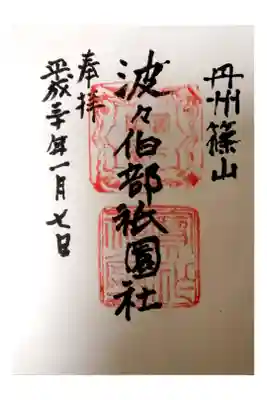 丹州篠山
波々伯部祇園社
奉拝
平成三十年一月七日